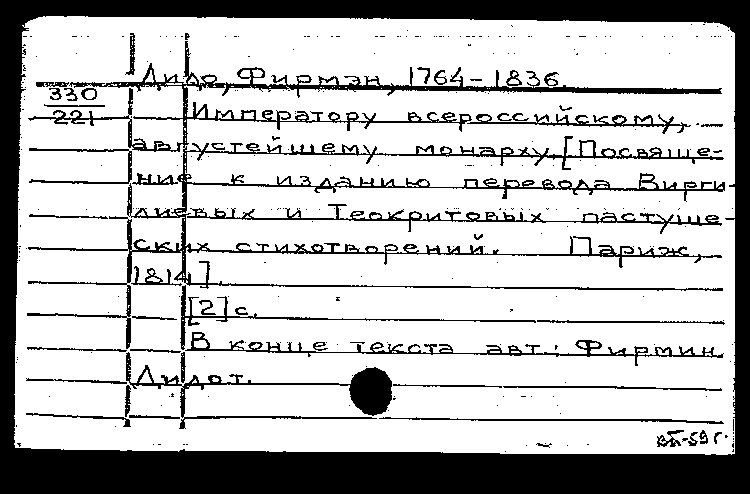 Дидо, Фирмэн, 1764-1836.
330
221
Императору всероссийскому,
августейшему монарху. [Посвяще-
ние к изданию перевода Вирги-
лиевых и Теокритовых пастуше-
ских стихотворений. Париж,
1814].
[2] с.
В конце текста авт.: Фирмин
Дидот.